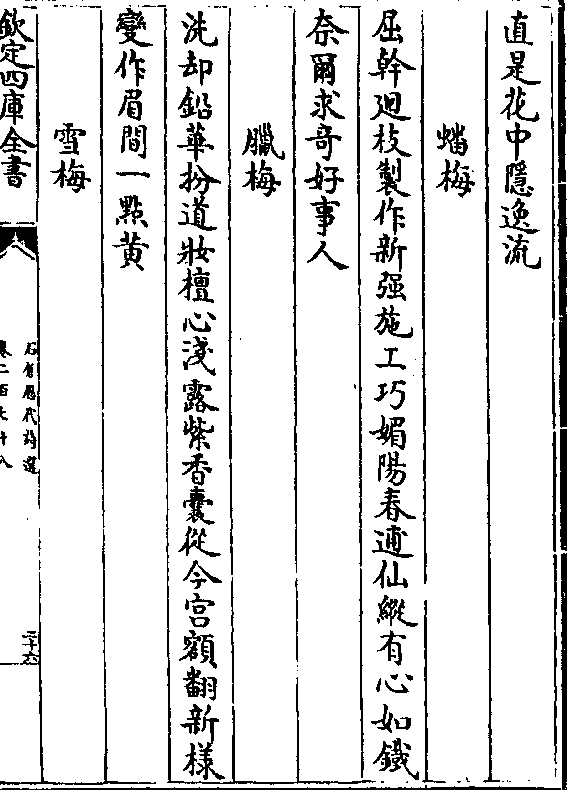 直是花中隱逸流
蟠梅
屈幹迴枝製作新强施工巧媚陽春逋仙縱有心如鐵
奈爾求奇好事人
臘梅
洗却鉛華扮道妝檀心淺露紫香囊從今宫額翻新樣
變作眉間一點黄
雪梅
欽定四庫全書
石倉歷代詩選
卷二百六十八
二十六